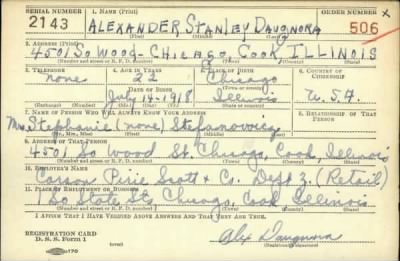 SERIAL NUMBER 1. NAME (Print) ORDER NUMBER X
2143 ALEXANDER STANLEY DAUGNORA 506
2. ADDRESS (Print)
4501 So Wood - CHICAGO COOK ILLINOIS
(Number and street or R. F. D. number) (Town) (County) (State)
3. TELEPHONE 4. AGE IN YEARS 5. PLACE OF BIRTH 6. COUNTRY OF CITIZENSHIP
none 22 Chicago
DATE OF BIRTH (Town or county)
July 14-1918 Illinois U.S.A.
(Exchange) (Number) (Mo.) (Day) (Yr.) (State or country)
7. NAME OF PERSON WHO WILL ALWAYS KNOW YOUR ADDRESS 8. RELATIONSHIP OF THAT PERSON
Mrs Stephanie (none) Stefanovicz
(Mr., Mrs., Miss) (First) (Middle) (Last)
9. ADDRESS OF THAT PERSON
4501 So Wood St. Chicago, Cook, Illinois
(Number and street or R. F. D. number) (Town) (County) (State)
10. EMPLOYER'S NAME
Carson Pirie Scott & Co. Dept 3. (Retail)
11. PLACE OF EMPLOYMENT OR BUSINESS
1 So State St Chicago, Cook, Illinois
(Number and street or R. F. D. number) (Town) (County) (State)
I AFFIRM THAT I HAVE VERIFIED ABOVE ANSWERS AND THAT THEY ARE TRUE.
REGISTRATION CARD
D. S. S. Form 1 Alex Daugnora
(Registrant's signature)